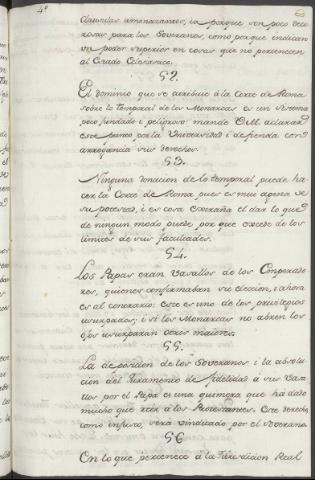 4º
Clausulas amenazantes, ia porque son poco deco
rosas para los Soveranos, como porque indican
un poder superior en cosas que no pertenecen
al Estado Eclesiastico.
§2.
El dominio que se atribuie á la Corte de Roma
sobre lo temporal de los Monarcas es un sistema
poco fundado i peligroso mande V.M. aclarar
este punto por la Universidad i defienda con
arrogancia sus derechos.
§3.
Ninguna donacion de lo temporal puede ha
cer la Corte de Roma pues es mui agena de
su potestad, i es cosa extraña el dar lo que
de ningun modo puede por que excede de los
limites de sus facultades.
§4.
Los Papas eran vasallos de los Emperado
res, quienes confirmaban su eleccion, i ahora
es al contrario: este es uno de los privilegios
usurpados; i si los Monarcas no abren los
ojos usurparán otros maiores.
§5.
La deposicion de los Soveranos i la absolu
cion del Juramento de fidelidad á sus Vasa
llos por el Papa es una quimera que ha dado
mucho que reir á los Protestantes. Este derecho,
como injusto, será vindicado por el Soverano
§6
En lo que pertenece á la Jurisdicion Real